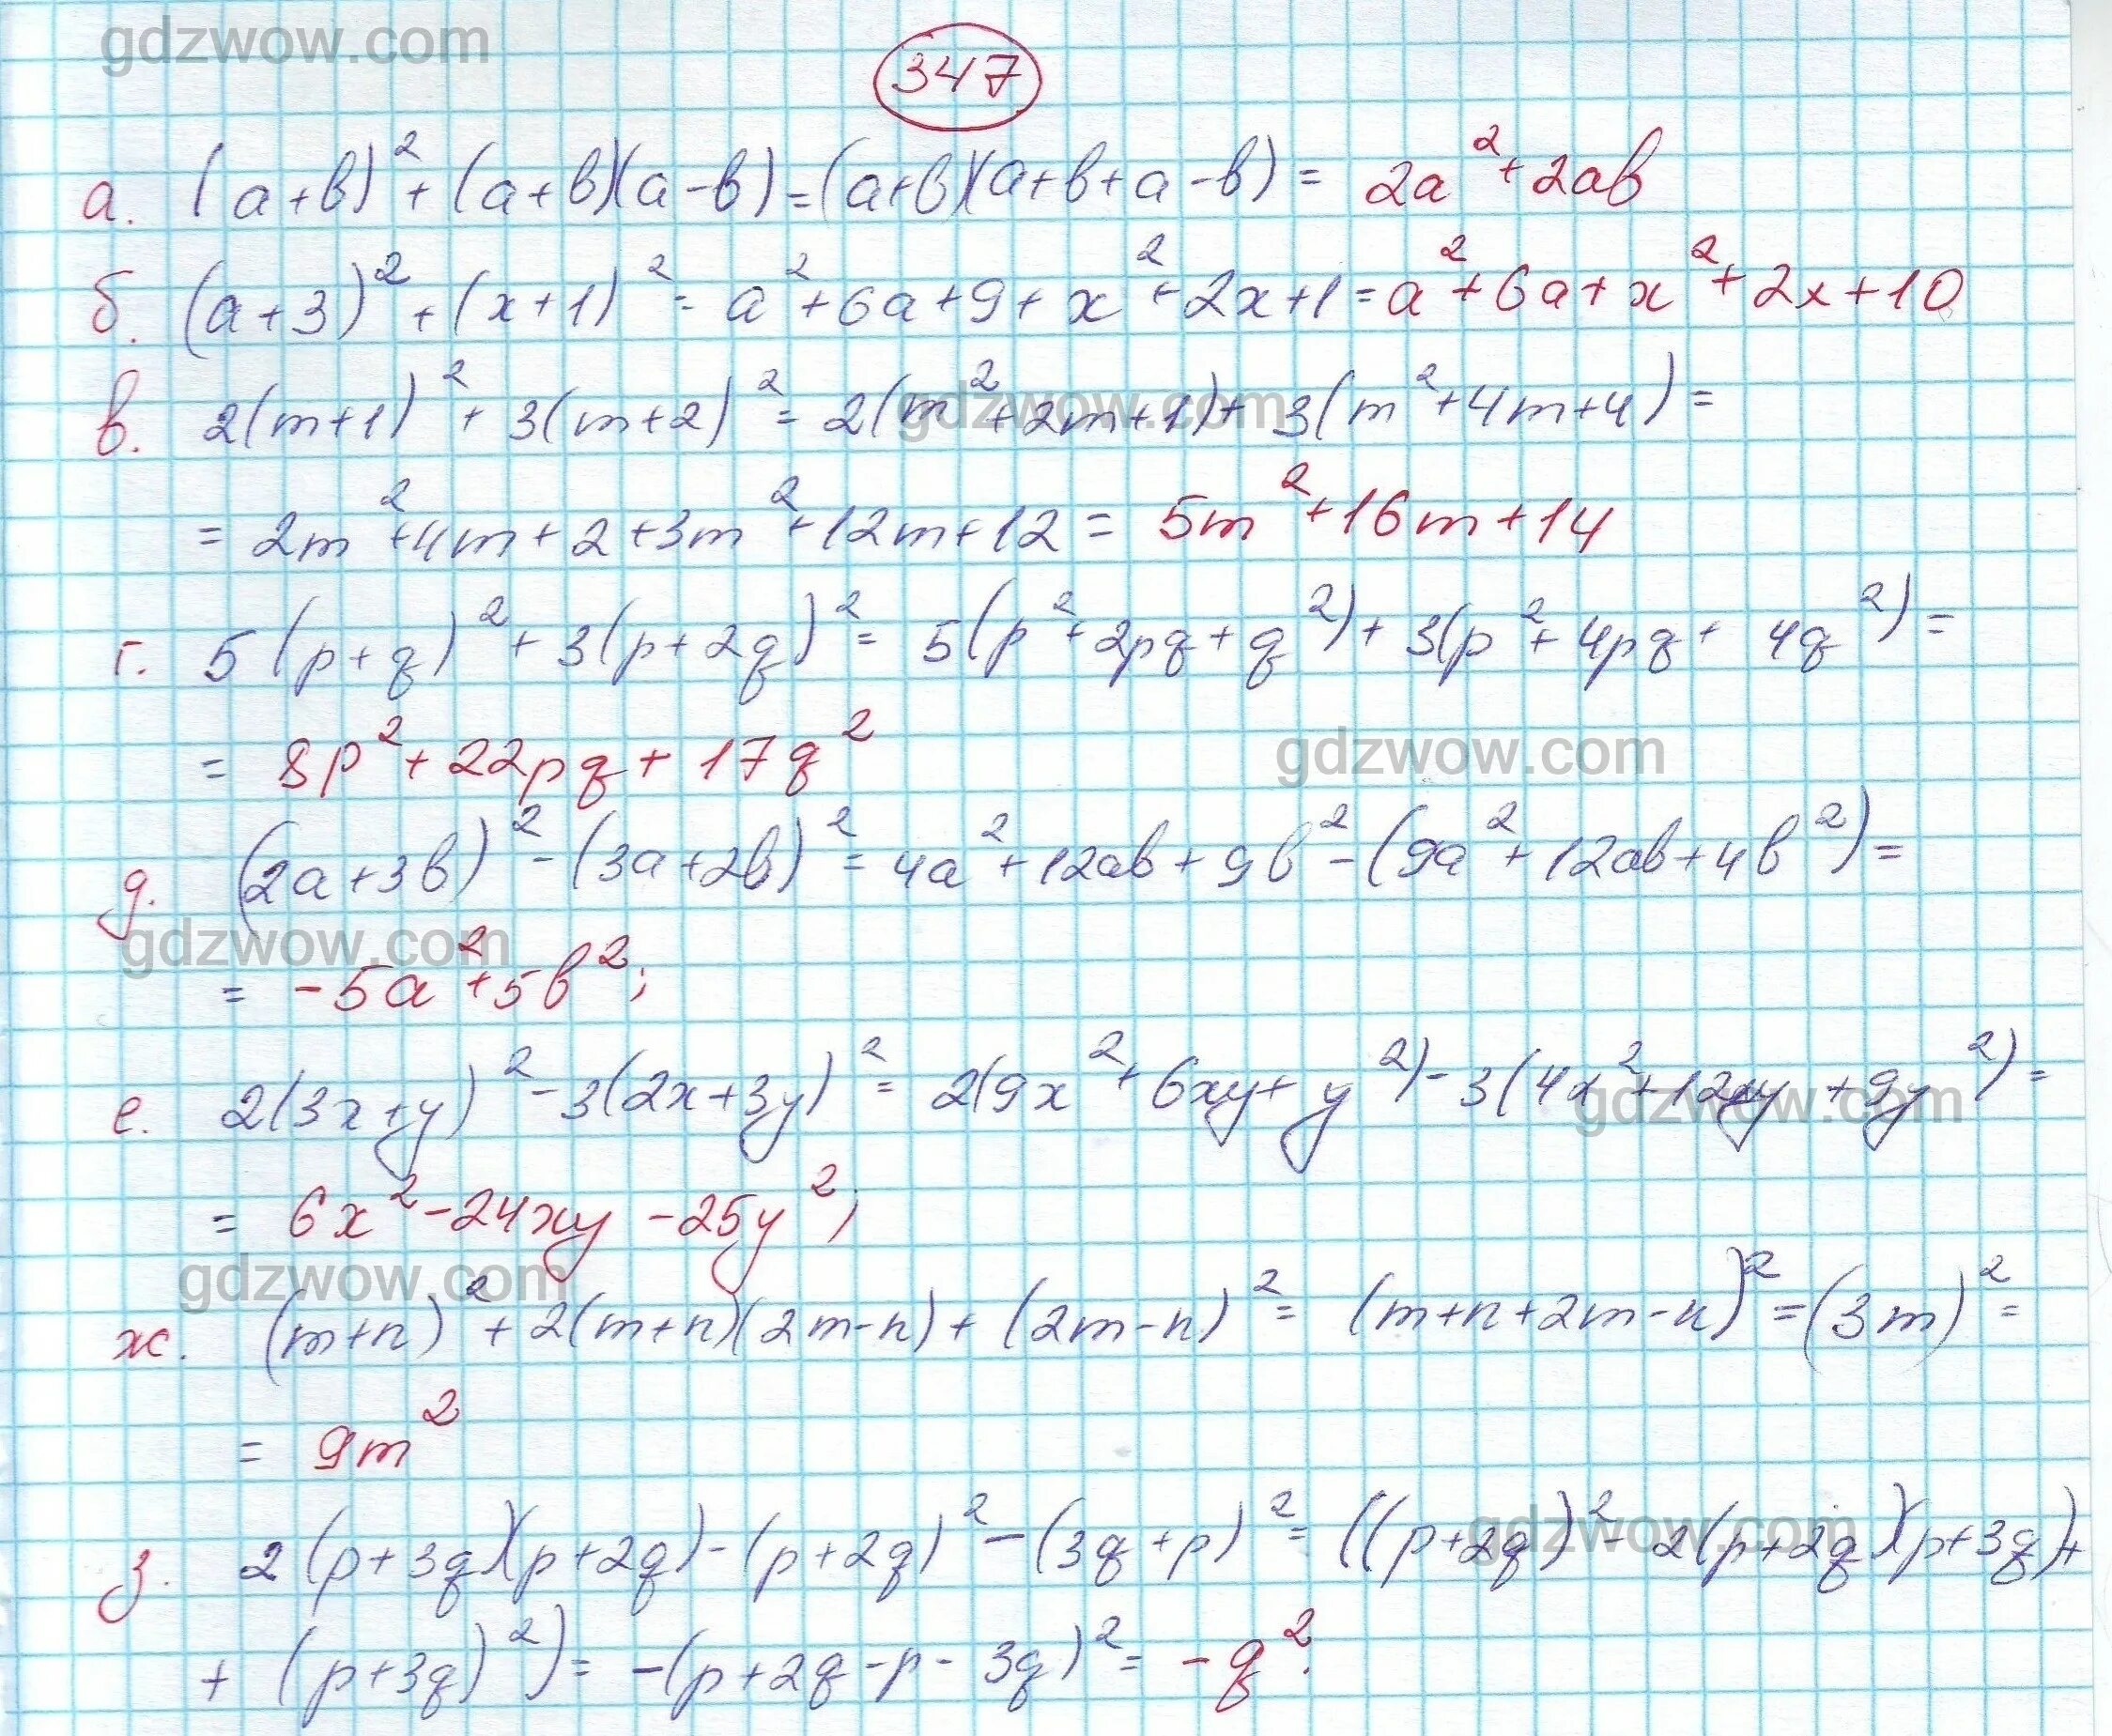 gdzwow.com
347
а. (a+b)²+(a+b)(a-b)=(a+b)(a+b+a-b)= 2a²+2ab
б. (a+3)²+(x+1)²= a²+6a+9+x²+2x+1=a²+6a+x²+2x+10
в. 2(m+1)²+3(m+2)²=2(m²+2m+1)+3(m²+4m+4)=
gdzwow.com
= 2m²+4m+2+3m²+12m+12= 5m²+16m+14
г. 5(p+q)²+3(p+2q)²= 5(p²+2pq+q²)+3(p²+4pq+4q²)=
= 8p²+22pq+17q²
gdzwow.com
д. (2a+3b)²-(3a+2b)²=4a²+12ab+9b²-(9a²+12ab+4b²)=
gdzwow.com
= -5a²+5b²;
е. 2(3x+y)²-3(2x+3y)²= 2(9x²+6xy+y²)-3(4x²+12xy+9y²)=
gdzwow.com
= 6x²-24xy-25y²;
gdzwow.com
ж. (m+n)²+2(m+n)(2m-n)+(2m-n)²= (m+n+2m-n)²=(3m)²=
= 9m²
з. 2(p+3q)(p+2q)-(p+2q)²-(3q+p)²= ((p+2q)²-2(p+2q)(p+3q)+
gdzwow.com
+ (p+3q)²)= -(p+2q-p-3q)²= -q².